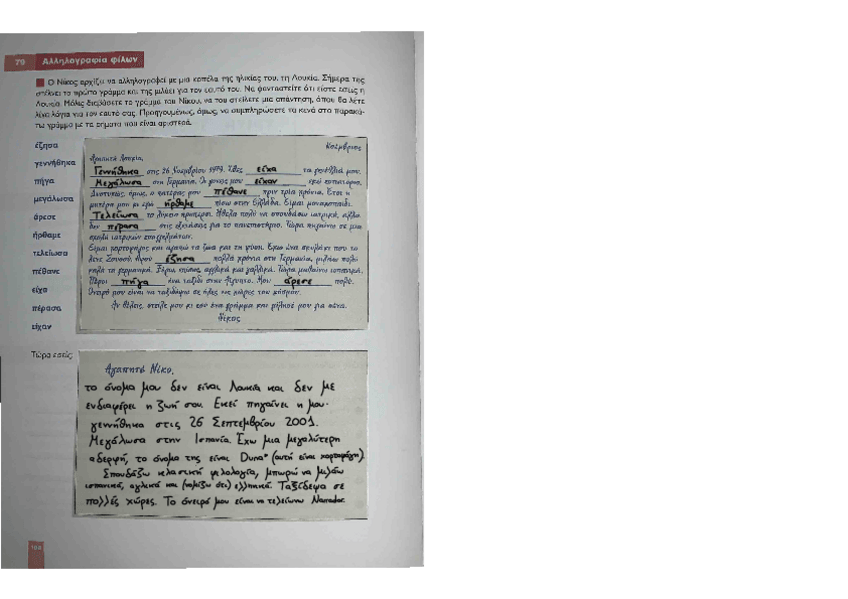 79 Αλληλογραφία φίλων
Ο Νίκος αρχίζει να αλληλογραφεί με μια κοπέλα της ηλικίας του, τη Λουκία. Σήμερα της
στέλνει το πρώτο γράμμα και της μιλάει για τον εαυτό του. Να φανταστείτε ότι είστε εσείς η
Λουκία. Μόλις διαβάσετε το γράμμα του Νίκου, να του στείλετε μια απάντηση, όπου θα λέτε
λίγα λόγια για τον εαυτό σας. Προηγουμένως, όμως, να συμπληρώσετε τα κενά στο παρακά-
τω γράμμα με τα ρήματα που είναι αριστερά.
έζησα
γεννήθηκα
πήγα
μεγάλωσα
άρεσε
ήρθαμε
τελείωσα
πέθανε
είχα
πέρασα
είχαν
Αγαπητή Λουκία,
Γεννήθηκα στις 26 Νοεμβρίου 1979. Χθες είχα τα γενέθλιά μου.
Μεγάλωσα στη Γερμανία. Οι γονείς μου είχαν εκεί εστιατόριο.
Δυστυχώς, όμως, ο πατέρας μου πέθανε πριν τρία χρόνια. Έτσι η
μητέρα μου κι εγώ ήρθαμε πίσω στην Ελλάδα. Είμαι μοναχοπαίδι.
Τελείωσα το λύκειο πρόπερσι. Ήθελα πολύ να σπουδάσω ιατρική, αλλά
δεν πέρασα στις εξετάσεις για το πανεπιστήμιο. Τώρα πηγαίνω σε μια
σχολή ιατρικών επαγγελμάτων.
Είμαι χορτοφάγος και αγαπώ τα ζώα και τη φύση. Έχω ένα σκυλάκι που το
λένε Αφού έζησα πολλά χρόνια στη Γερμανία, μιλάω πολύ
καλά τα γερμανικά. Ξέρω, επίσης, αγγλικά και γαλλικά. Τώρα μαθαίνω ισπανικά.
Πέρσι πήγα ένα ταξίδι στην Αίγυπτο. Μου άρεσε πολύ.
Όνειρό μου είναι να ταξιδέψω σε όλες τις χώρες του κόσμου.
Αν θέλεις, στείλε μου κι εσύ ένα γράμμα και μίλησέ μου για σένα.
Νίκος
Τώρα εσείς:
Αγαπητέ Νίκο,
το όνομα μου δεν είναι Λουκία και δεν με
ενδιαφέρει η ζωή σου. Εκεί πηγαίνει η μου·
γεννήθηκα στις 26 Σεπτεμβρίου 2001.
Μεγάλωσα στην Ισπανία. Έχω μια μεγαλύτερη
αδερφή, το όνομα της είναι Duna* (αυτή είναι χορτοφάγη)
Σπουδάζω κλασική φιλολογία, μπορώ να μιλάω
ισπανικά, αγλικά και (νομίζω ότι) ελληνικά. Ταξίδεψα σε
πολλές χώρες. Το όνειρό μου είναι να τελείωνω